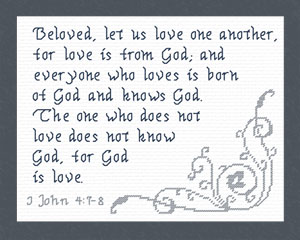 Beloved, let us love one another,
for love is from God; and
everyone who loves is born
of God and knows God.
The one who does not
love does not know
God, for God
is love.
I John 4:7-8